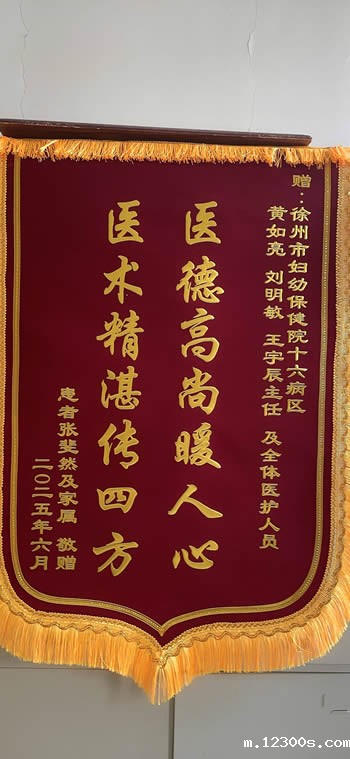 赠：徐州市妇幼保健院十六病区
黄如亮 刘明敏 王宇辰主任 及全体医护人员
医德高尚暖人心
医术精湛传四方
患者张斐然及家属 敬赠
二〇二五年六月
m.12300s.com